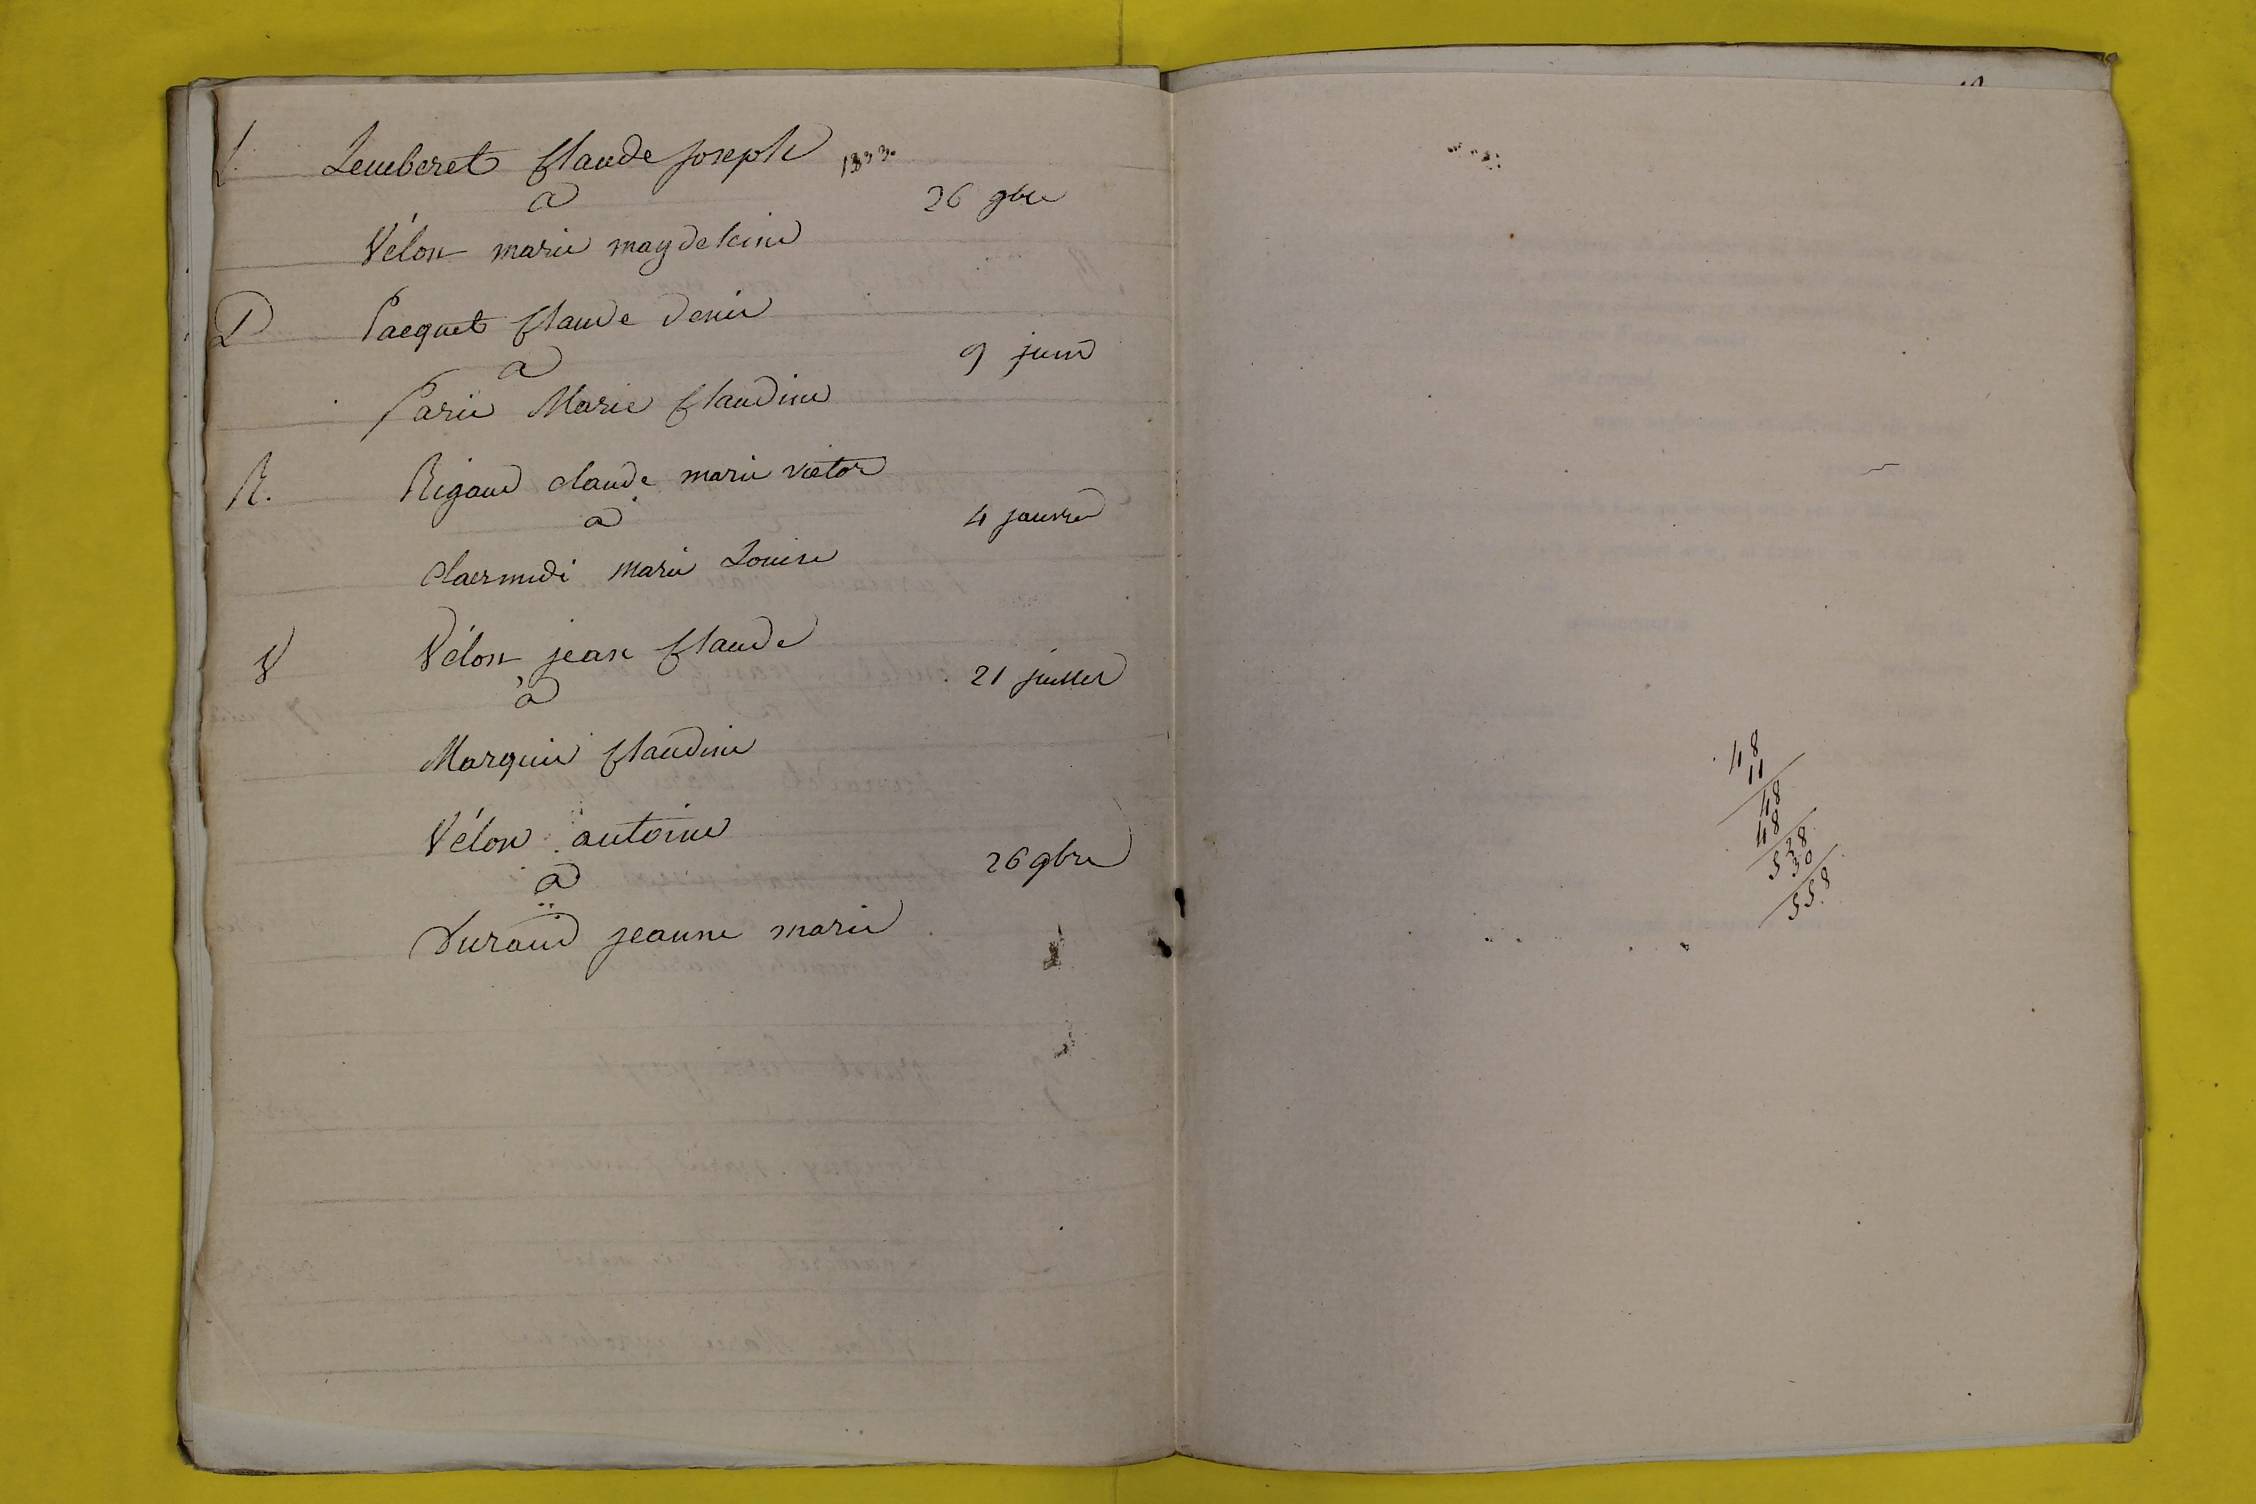 L. Lemberet Claude Joseph 1833.
a 26 9bre
Vélon marie magdeleine
P Pacquet Claude denis
a 9 juin
Paris Marie Claudine
R. Rigaud claude marie victor
a 4 janvier
Clairmidi marie Louise
V Vélon jean Claude
a 21 juillet
Marquis Claudine
Vélon antoine
a 26 9bre
Durand jeanne marie
48
11
48
48
528
30
558